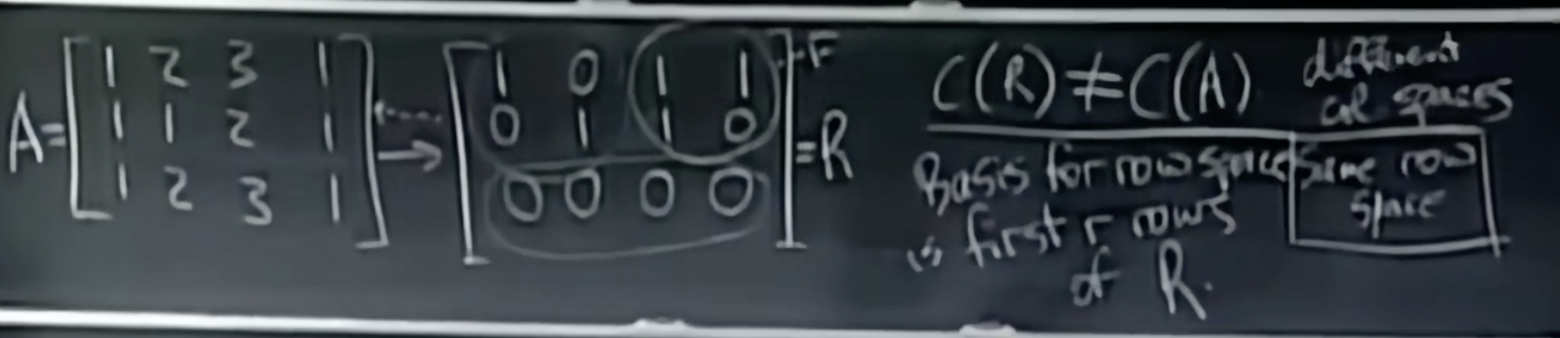 A = [ 1 2 3 1 ] → [ 1 0 1 1 ] F
[ 1 1 2 1 ] [ 0 1 1 0 ] = R
[ 1 2 3 1 ] [ 0 0 0 0 ]
C(R) ≠ C(A) different
col spaces
Basis for row space
is first r rows
of R.
Same row
space